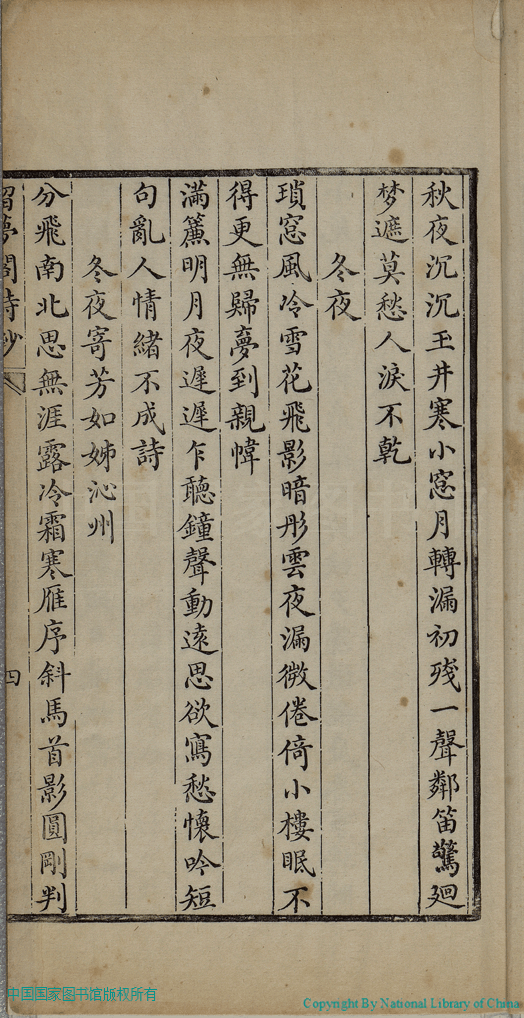 秋夜沉沉玉井寒小窓月轉漏初殘一聲鄰笛驚廻
梦遮莫愁人淚不乾
冬夜
瑣窓風冷雪花飛影暗彤雲夜漏微倦倚小樓眠不
得更無歸夢到親幃
滿簾明月夜遲遲乍聽鐘聲動遠思欲寫愁懷吟短
句亂人情緒不成詩
冬夜寄芳如姊沁州
分飛南北思無涯露冷霜寒雁序斜馬首影圓剛判
留夢閣詩鈔
四
中国国家图书馆版权所有
Copyright By National Library of China